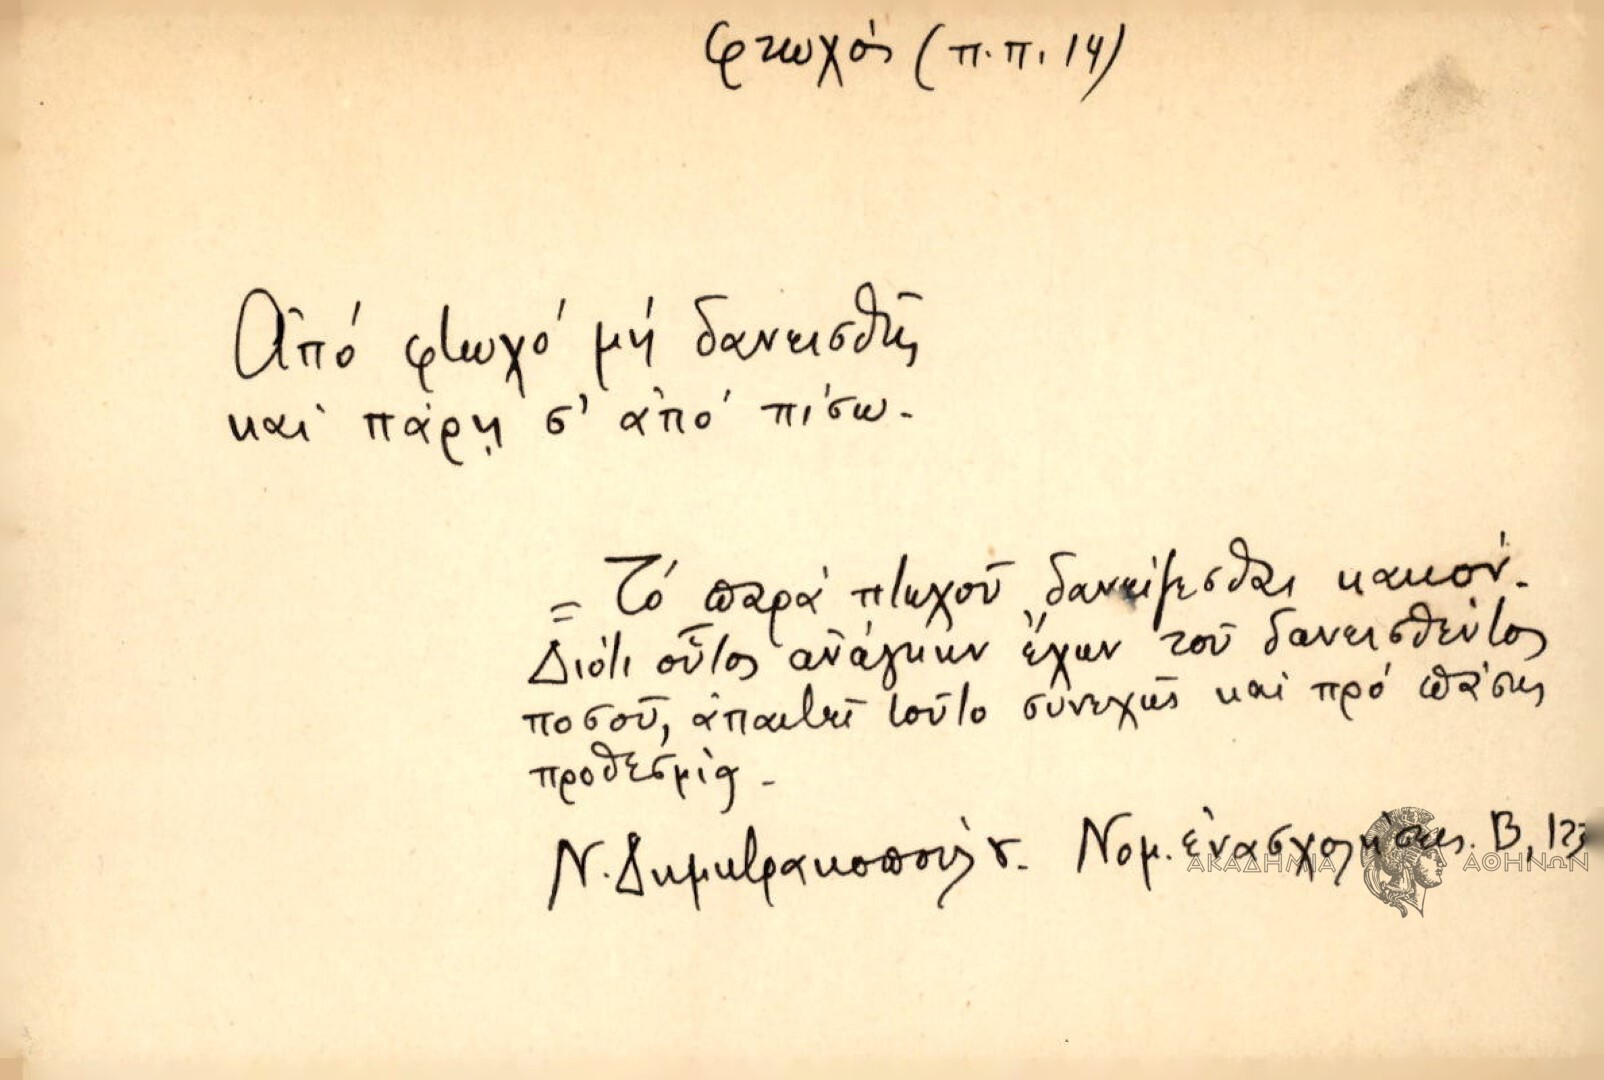 φτωχός (π.π. 14)
Ἀπό φτωχό μή δανεισθῇς
καί πάρῃ σ' ἀπό πίσω.
= Τό παρά πτωχοῦ δανείζεσθαι κακόν.
Διότι οὗτος ἀνάγκην ἔχων τοῦ δανεισθέντος
ποσοῦ, ἀπαιτεῖ τοῦτο συνεχῶς καί πρό πάσης
προθεσμίας.
Ν. Δημητρακοπούλου. Νομ. ἐνασχολήσεις. Β, 123
ΑΚΑΔΗΜΙΑ ΑΘΗΝΩΝ